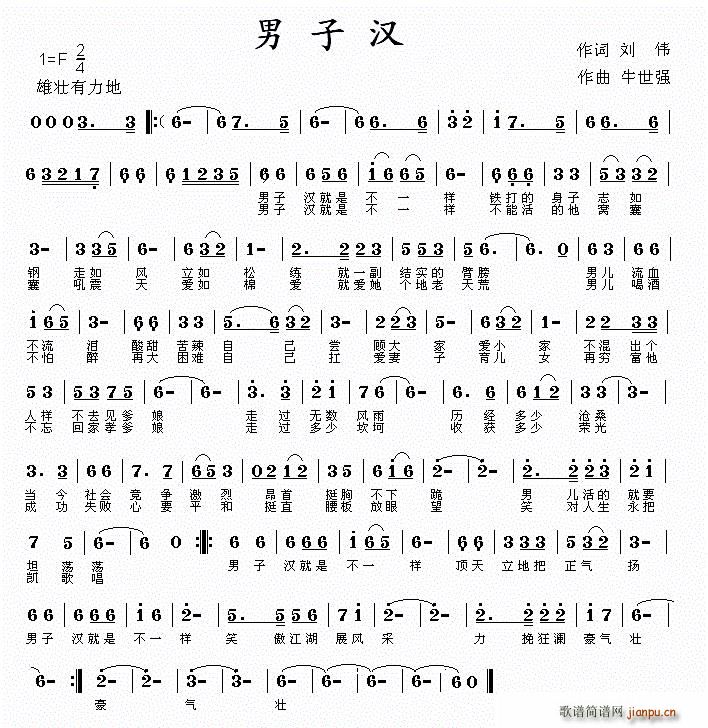 男子汉
1=F 2/4
作词 刘 伟
雄壮有力地
作曲 牛世强
0 0 0 3. 3 ‖: ( 6- | 6 7. 5 | 6- | 6- | 3 2 | 1 7. 5 | 6- | 6-
6 3 2 1 7 | 6 6 | 6 1 2 3 5 | 6 6 | 6 5 6 | 1 6 6 5 | 6- | 6 6 6 | 3 3 | 5 3 3 2
男子 汉就是 不一 样 铁打的 身子 志如
男子 汉就是 不一 样 不能活 的他 窝囊
3- | 3 3 5 | 6- | 6 3 2 | 1- | 2. 2 2 3 | 5 5 3 | 5 6. | 6. 0 | 6 3 | 6 6
钢 走如 风 立如 松 练 就一副 结实的 臂膀 男儿 流血
囊 吼震 天 爱如 棉 爱 就爱她 个地老 天荒 男儿 喝酒
1 6 5 | 3- | 2 2 | 3 3 | 5. 6 | 3 2 | 2 2 | 3 3 | 1- | 2 2 | 3- | 2 2 3 3
不流 泪 酸甜 苦辣 自 己 尝 顾大 家 爱小 家 不混 出个
不怕 醉 再大 困难 自 己 扛 爱妻 子 育儿 女 再穷 富他
5 3 | 5 3 7 5 | 6- | 6- | 3. 3 | 2 1 2 | 7 6 | 6- | 6. 6 | 6 1 2 | 3 3 | 3-
人样 不去见爹 娘 走 过 无数 风雨 历 经 多少 沧桑
不忘 回家孝爹 娘 走 过 多少 坎坷 收 获 多少 荣光
3. 3 | 6 6 | 7. 7 | 6 5 3 | 0 2 1 2 | 3 3 | 6 1 6 | 2- | 2- | 2. 2 | 2 2 3 | 2 1
当 今 社会 竞 争 激烈 昂首 挺胸 不下 跪 男 儿活的 就要
成 功 失败 心 要 平和 挺直 腰板 放眼 望 笑 对人生 永把
7 5 | 6- | 6 0 :‖: 6 6 | 6 6 6 | 1 6 5 | 6- | 6- | 6 6 | 3 3 3 | 2 3 | 5-
坦 荡荡 男子 汉就是 不一 样 顶天 立地把 正气 扬
凯 歌唱
6 6 | 6 6 6 | 1 6 | 2- | 5. 5 | 5 5 6 | 3 1 | 2- | 4. 2 | 2 2 2 1 | 7 5 | 6-
男子 汉就是 不一 样 笑 傲江湖 展风 采 力 挽狂澜 豪气 壮
6- :‖ 7- | 2- | 5- | 6- | 6- | 6- | 6 0 ‖
豪 气 壮
歌谱简谱网
jianpu.cn